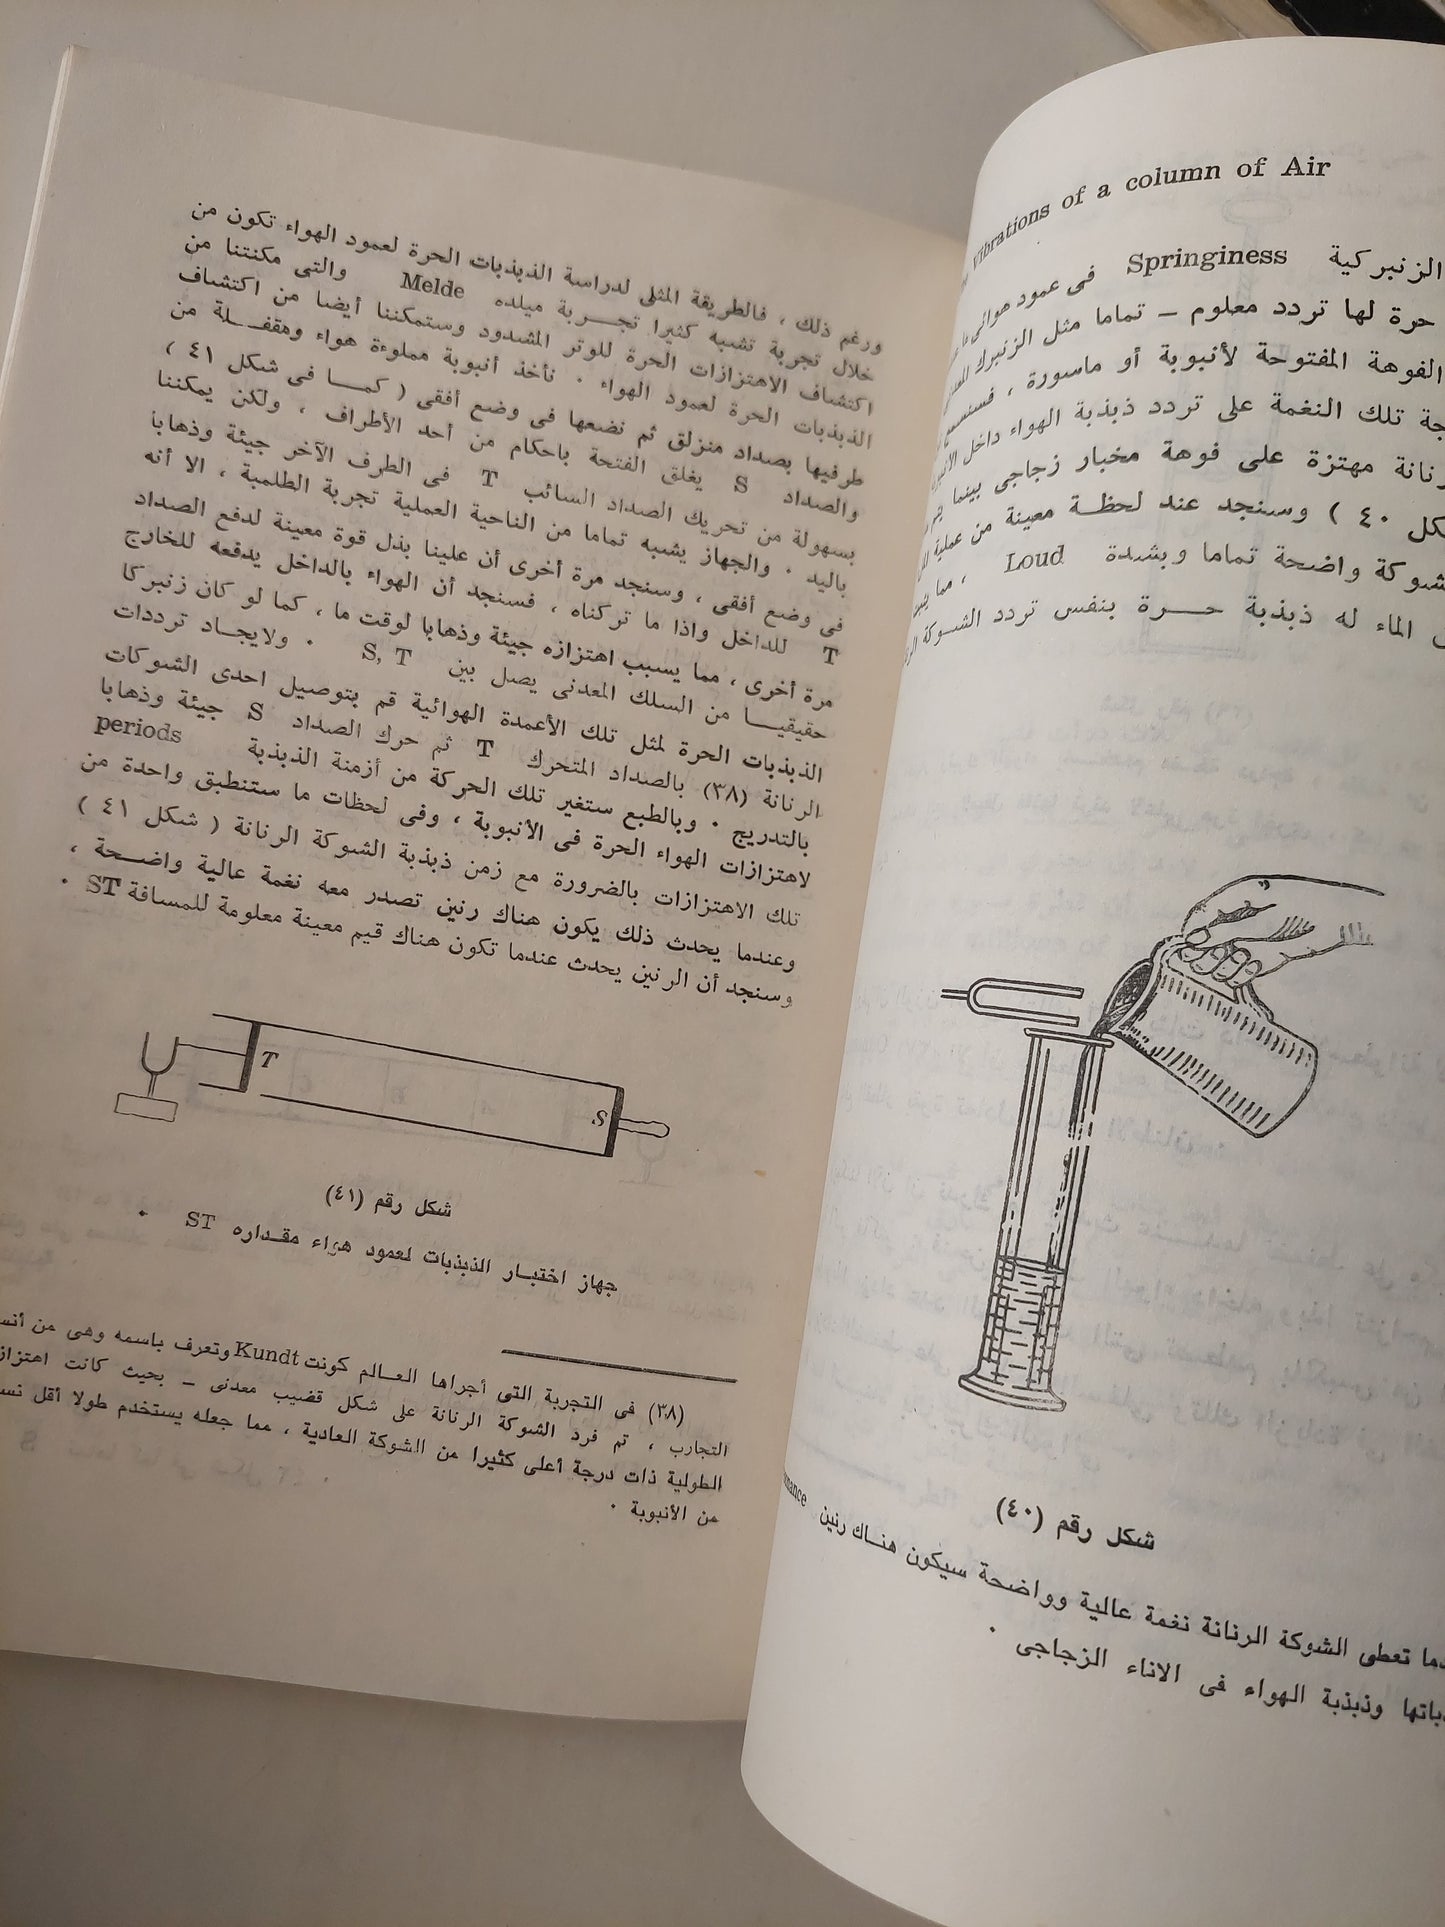 Vibrations of a column of Air
الزنبركية Springiness فى عمود هوائى
حرة لها تردد معلوم – تماما مثل الزنبرك
الفوهة المفتوحة لأنبوبة أو ماسورة ، فسنسمع
تلك النغمة على تردد ذبذبة الهواء داخل
مهتزة على فوهة مخبار زجاجى بينما
٤٠ ) وسنجد عند لحظة معينة من عملية
واضحة تماما وبشدة Loud ، مما
الماء له ذبذبة حرة بنفس تردد الشوكة
شكل رقم (٤٠)
تعطى الشوكة الرنانة نغمة عالية وواضحة سيكون هناك رنين
وذبذبة الهواء فى الاناء الزجاجى .
ورغم ذلك ، فالطريقة المثلى لدراسة الذبذبات الحرة لعمود الهواء تكون من
خلال تجربة تشبه كثيرا تجربة ميلده Melde والتى مكنتنا من
اكتشاف الاهتزازات الحرة للوتر المشدود وستمكننا أيضا من اكتشاف
الذبذبات الحرة لعمود الهواء . نأخذ أنبوبة مملوءة هواء ومقفلة من
طرفيها بصداد منزلق ثم نضعها فى وضع أفقى ( كما فى شكل ٤١ )
والصداد S يغلق الفتحة باحكام من أحد الأطراف ، ولكن يمكننا
بسهولة من تحريك الصداد السائب T فى الطرف الآخر جيئة وذهابا
باليد . والجهاز يشبه تماما من الناحية العملية تجربة الطلمبة ، الا أنه
فى وضع أفقى ، وسنجد مرة أخرى أن علينا بذل قوة معينة لدفع الصداد
T للداخل واذا ما تركناه ، فسنجد أن الهواء بالداخل يدفعه للخارج
مرة أخرى ، مما يسبب اهتزازه جيئة وذهابا لوقت ما ، كما لو كان زنبركا
حقيقيا من السلك المعدنى يصل بين S, T . ولايجاد ترددات
الذبذبات الحرة لمثل تلك الأعمدة الهوائية قم بتوصيل احدى الشوكات
الرنانة (٣٨) بالصداد المتحرك T ثم حرك الصداد S جيئة وذهابا
بالتدريج . وبالطبع ستغير تلك الحركة من أزمنة الذبذبة periods
لاهتزازات الهواء الحرة فى الأنبوبة ، وفى لحظات ما ستنطبق واحدة من
تلك الاهتزازات بالضرورة مع زمن ذبذبة الشوكة الرنانة ( شكل ٤١ )
وعندما يحدث ذلك يكون هناك رنين تصدر معه نغمة عالية واضحة ،
وسنجد أن الرنين يحدث عندما تكون هناك قيم معينة معلومة للمسافة ST .
T
S
شكل رقم (٤١)
جهاز اختبار الذبذبات لعمود هواء مقداره ST .
(٣٨) فى التجربة التى أجراها العالم كونت Kundt وتعرف باسمه وهى من
التجارب ، تم فرد الشوكة الرنانة على شكل قضيب معدنى – بحيث كانت
الطولية ذات درجة أعلى كثيرا من الشوكة العادية ، مما جعله يستخدم طولا أقل
من الأنبوبة .